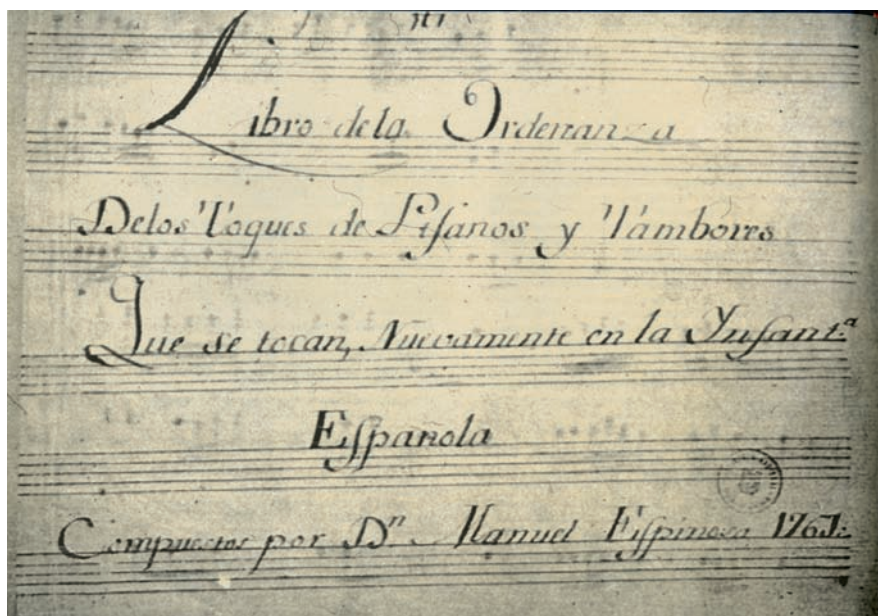 Libro dela Ordenanza
Delos Toques de Pifanos y Tambores
Que se tocan, Nuevamente en la Ynfant.ª
Española
Compuestos por Dn. Manuel Espinosa 1761.